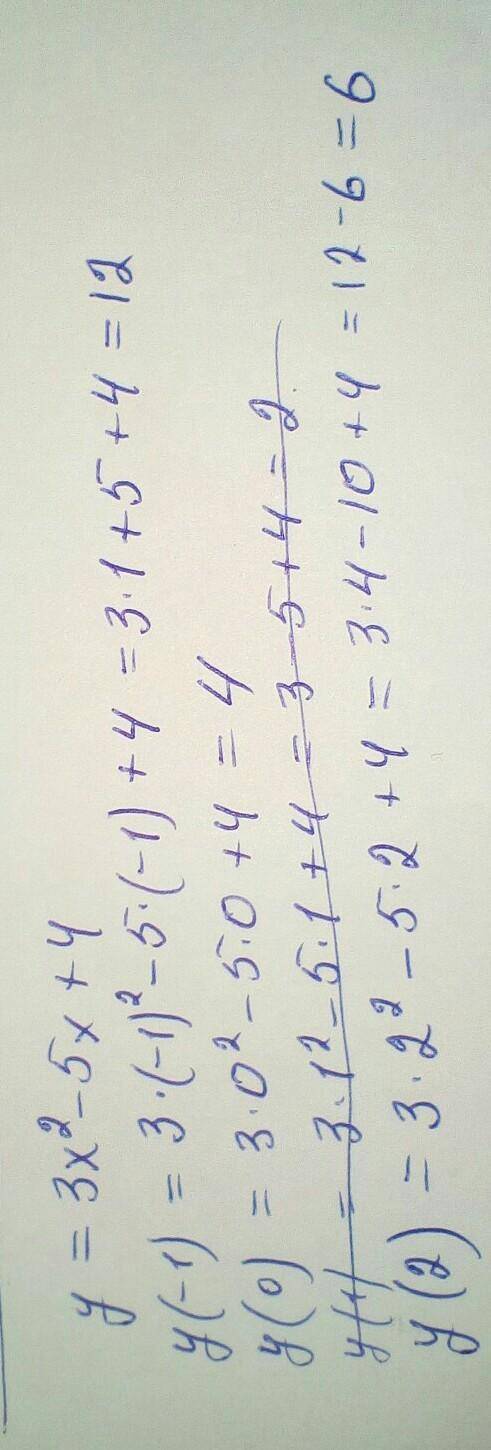 y = 3x² - 5x + 4
y(-1) = 3·(-1)² - 5·(-1) + 4 = 3·1 + 5 + 4 = 12
y(0) = 3·0² - 5·0 + 4 = 4
y(1) = 3·1² - 5·1 + 4 = 3 - 5 + 4 = 2
y(2) = 3·2² - 5·2 + 4 = 3·4 - 10 + 4 = 12 - 6 = 6